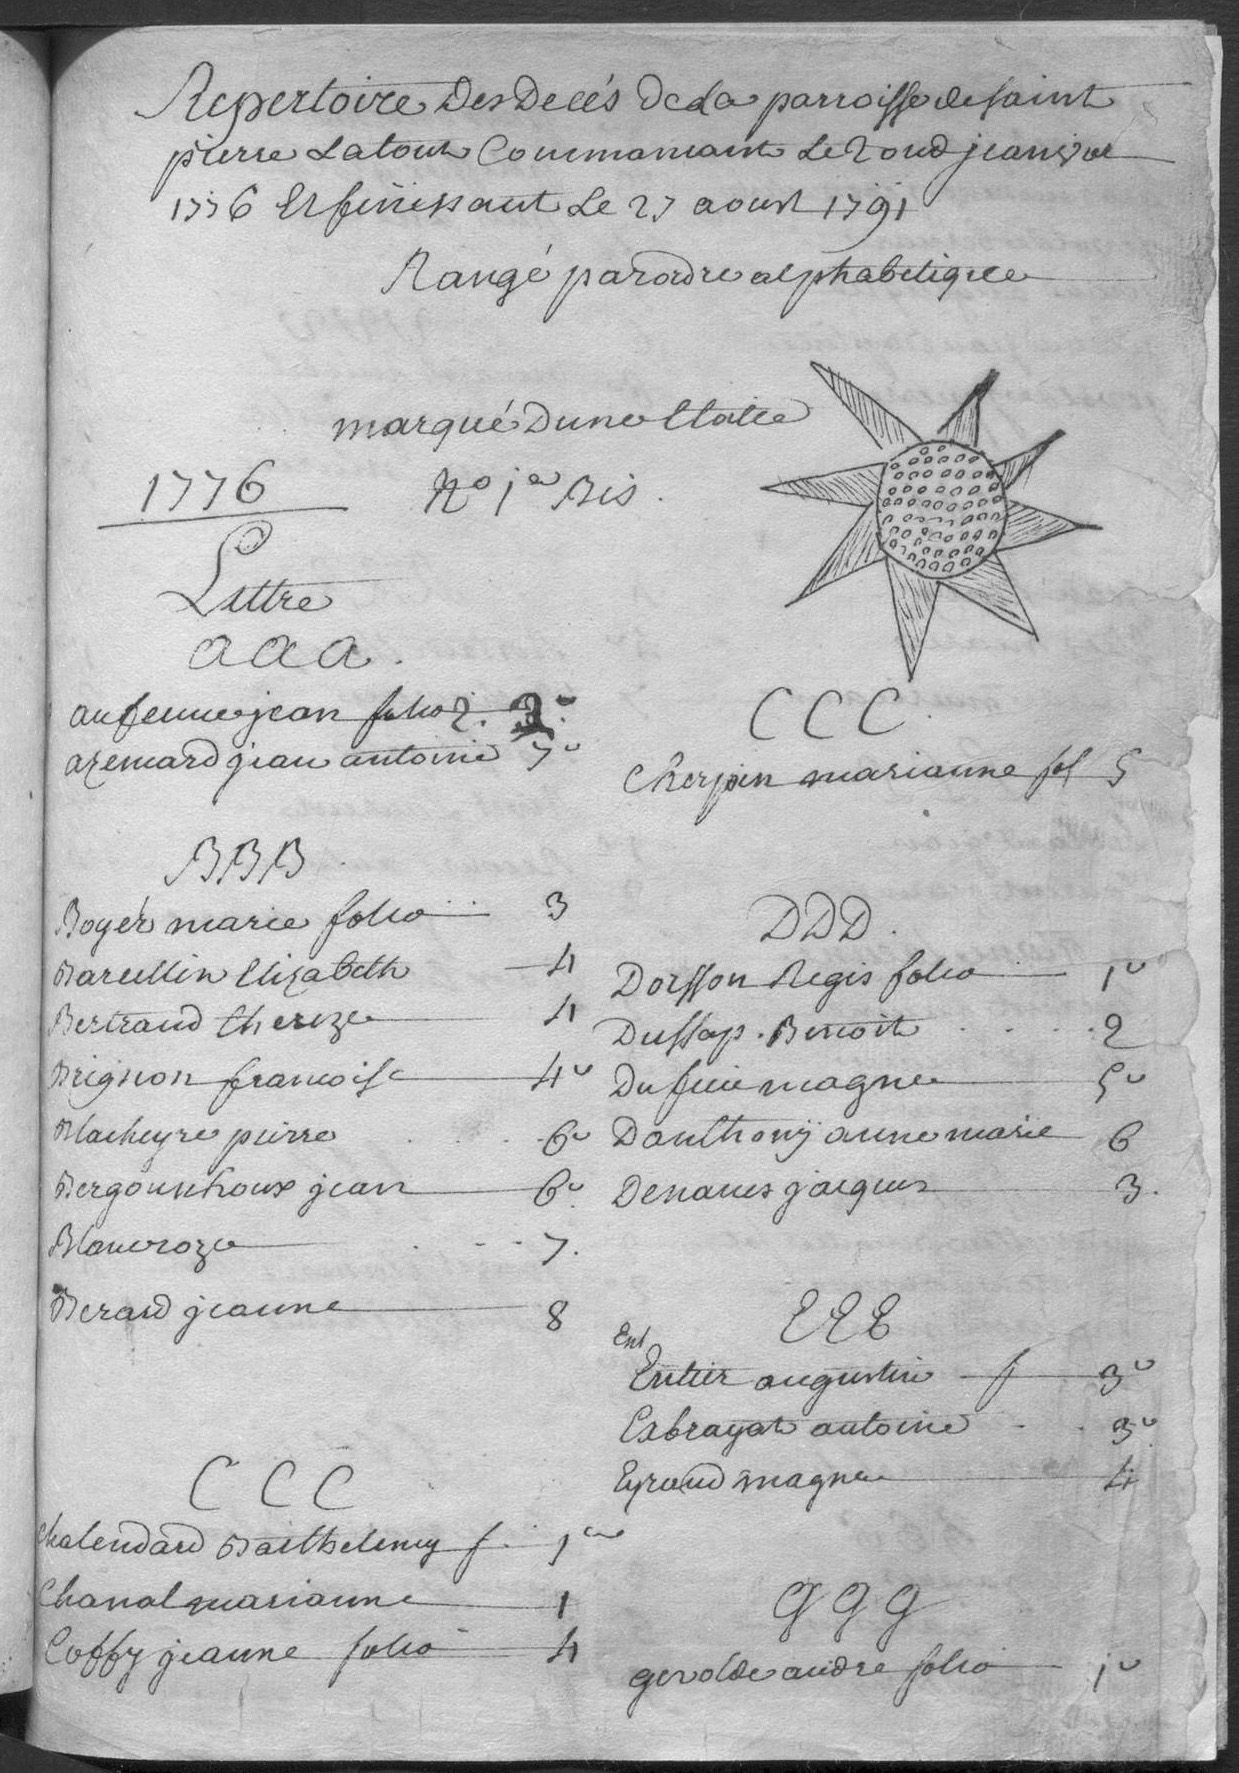 Repertoire Des Decés De La parroisse de saint
pierre Latour Commancant Le 2 oud jeanvier
1776 Et finissant Le 27 aoust 1791
Rangé par ordre alphabetique
marqué Dune Etoille
1776
No 1er Bis.
Lettre
aaa.
jean folio 2. 2v
azemard jean antoine 7v
BBB.
Boyér marie folio 3
Marcellin Elizabeth 4
Bertrand thereze 4
Brignon francoise 4v
Blacheyre pierre 6v
Bergounhoux jean 6v
Blanc roze 7.
Berard jeanne 8
CCC
Chalendard Barthelemy f. 1er
Chanal marianne 1
Coffy jeanne folio 4
CCC.
Cherpin marianne fol 5
DDD.
Doisson Regis folio 1v
Dussap. Benoit 2
magne 5v
Danthony anne marie 6
jacques 3.
EEE
Ent
Entier augustin f 3v
Exbrayat antoine 3v
Eyraud magne 4
ggg
andre folio 1v